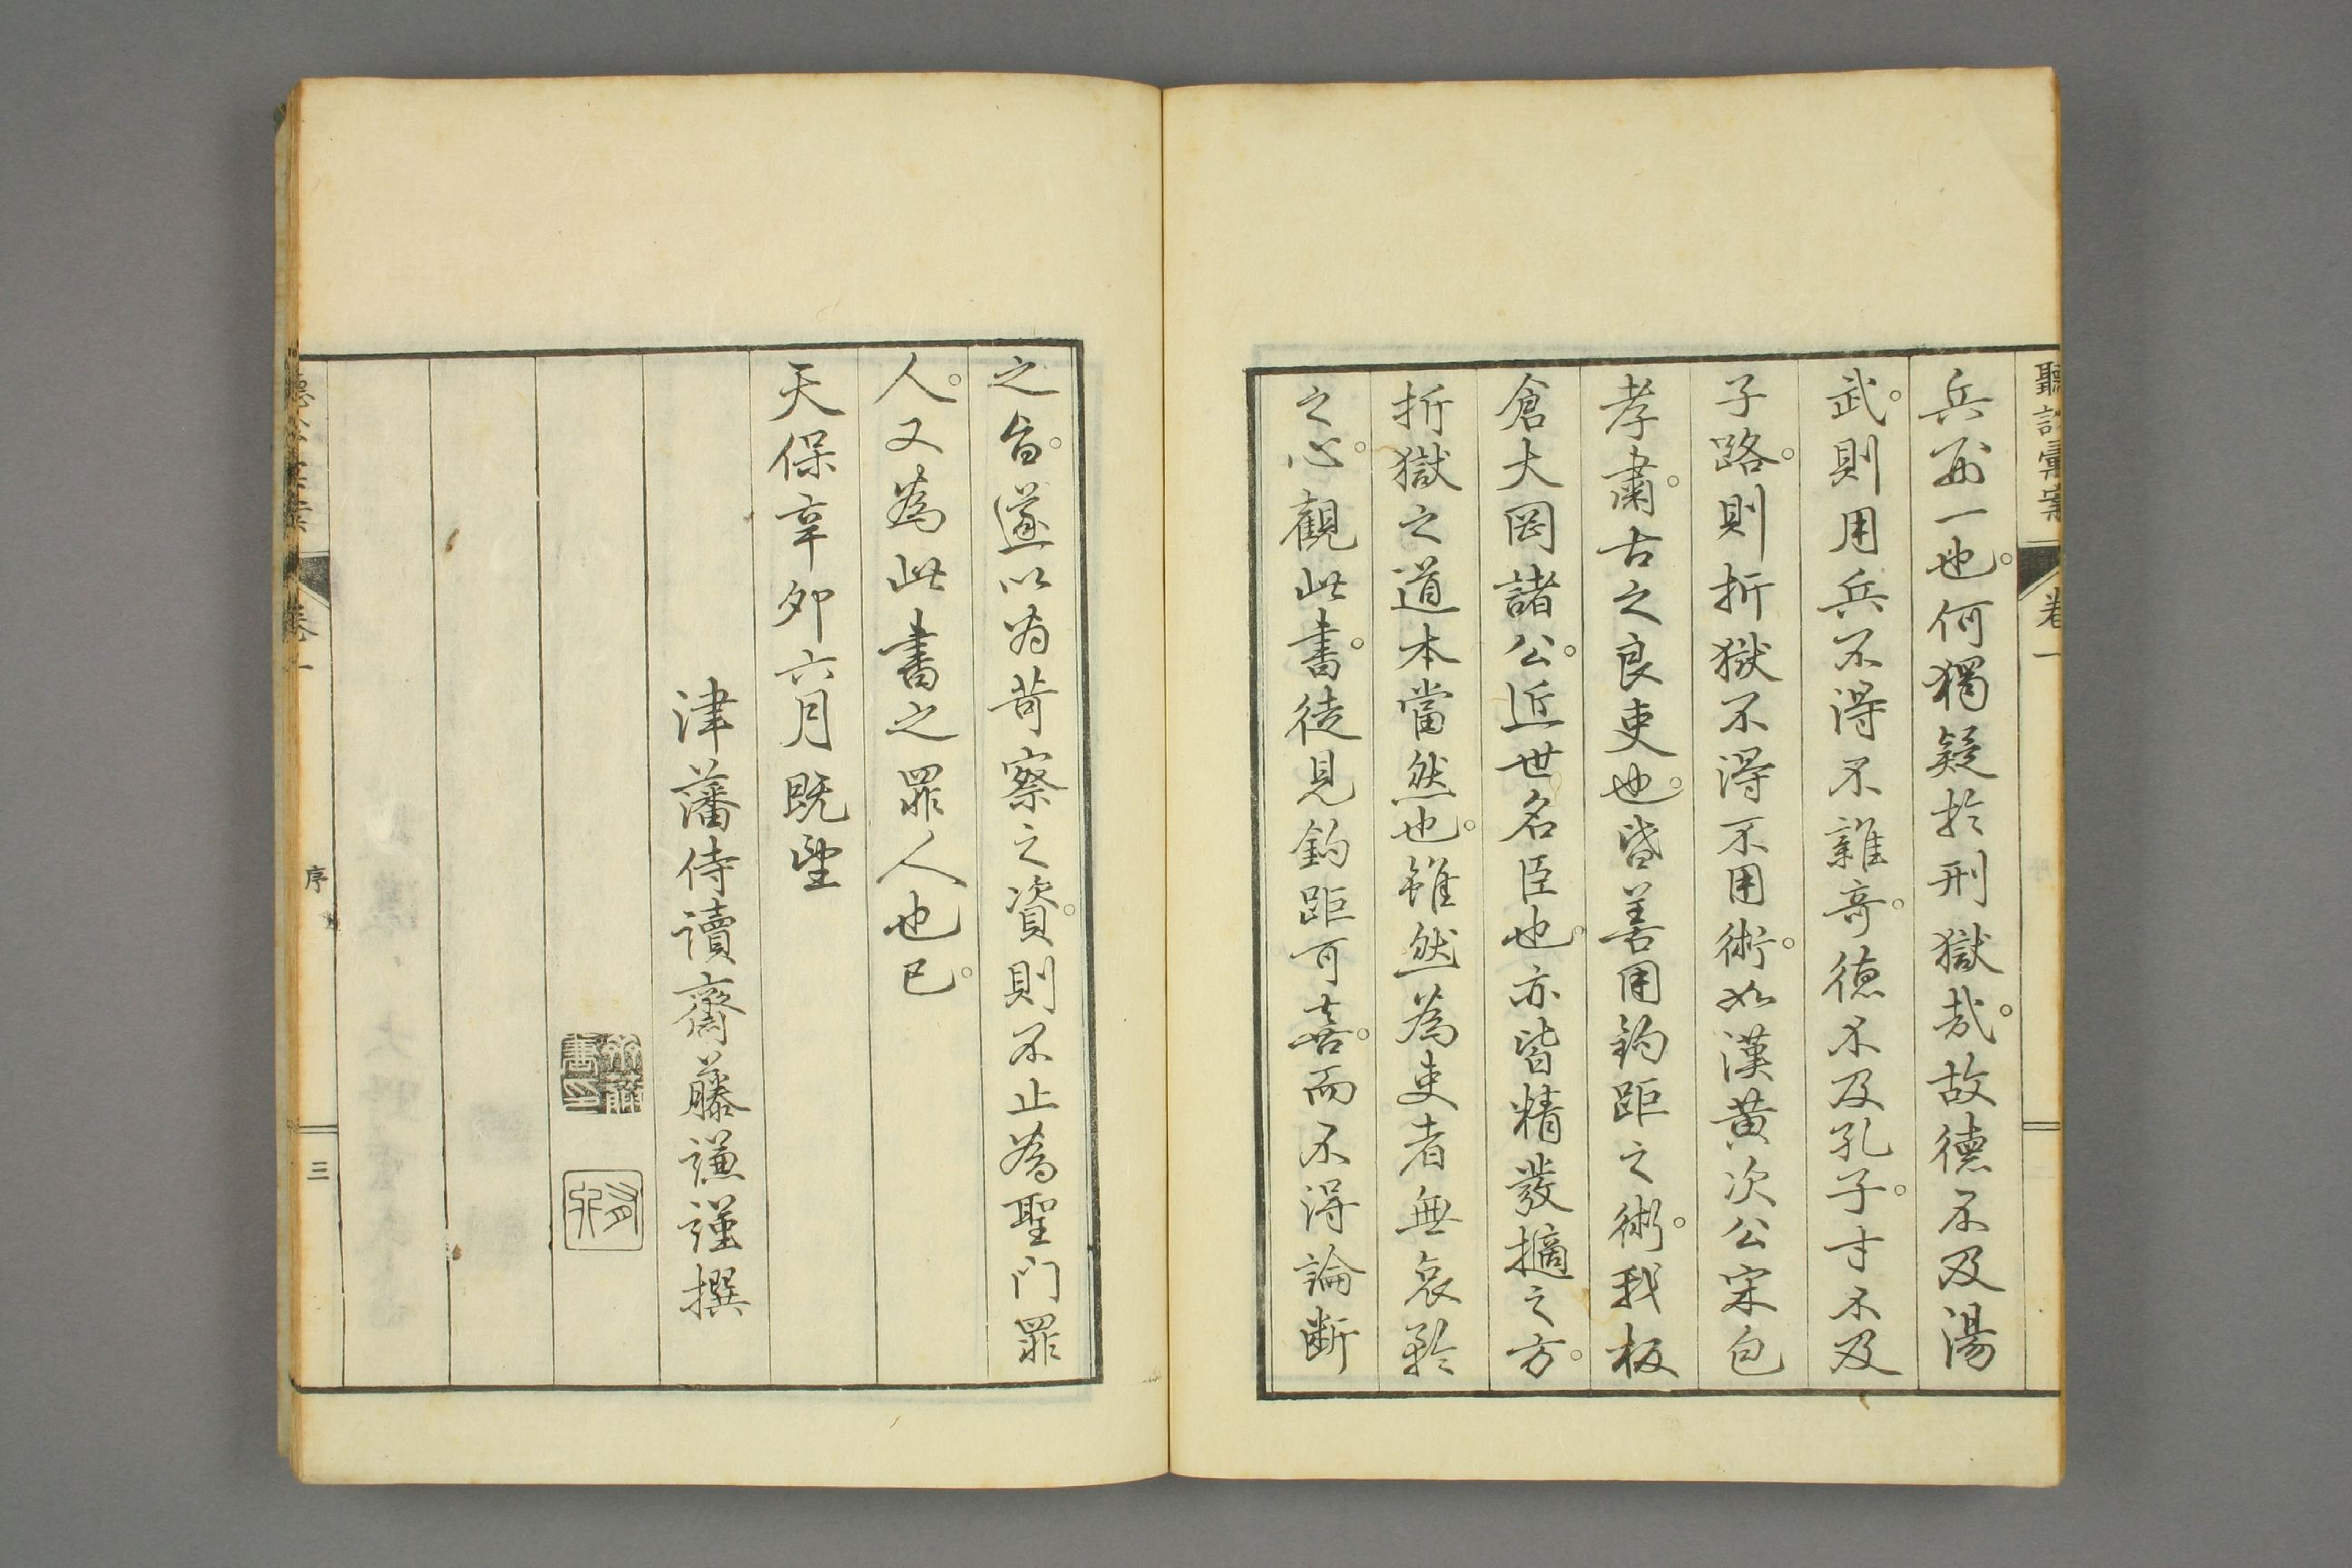 聽訟彙案 卷一
兵刑一也。何獨疑於刑獄哉。故德不及湯
武。則用兵不得不雜奇。德不及孔子。才不及
子路。則折獄不得不用術。如漢黃次公宋包
孝肅。古之良吏也。皆善用鈎距之術。我板
倉大岡諸公。近世名臣也。亦皆精發擿之方。
折獄之道本當然也。雖然為吏者無哀矜
之心。觀此書。徒見鈎距可喜。而不得論斷
之旨。遂以為苛察之資。則不止為聖門罪
人。又為此書之罪人也已。
天保辛卯六月既望
津藩侍讀齋藤謙謹撰
聽訟彙案 卷一
序
三